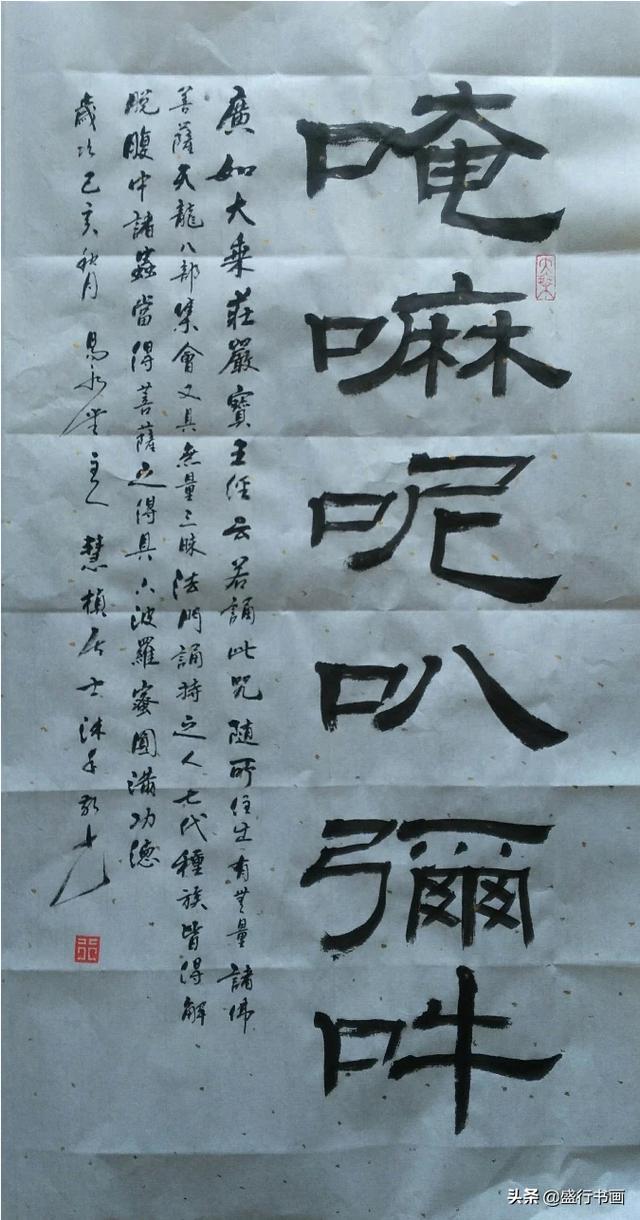 唵嘛呢叭彌吽
廣如大乘莊嚴寶王經云若誦此咒隨所住生有無量諸佛
菩薩天龍八部集會又具無量三昧法門誦持之人七代種族皆得解
脫腹中諸蟲當得菩薩之得具六波羅蜜圓滿功德
歲次己亥秋月 易水堂主人慧楨居士沐手敬
头条 @盛行书画